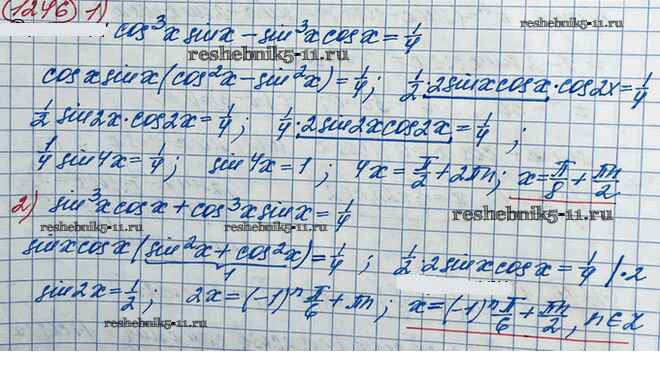 (1246) 1)
cos³x sinx − sin³x cosx = 1/4
reshebnik5-11.ru
cosx sinx (cos²x − sin²x) = 1/4; 1/2 · 2sinxcosx · cos2x = 1/4
1/2 sin2x · cos2x = 1/4; 1/4 · 2sin2xcos2x = 1/4;
reshebnik5-11.ru
1/4 sin4x = 1/4; sin4x = 1; 4x = π/2 + 2πn; x = π/8 + πn/2
2) sin³x cosx + cos³x sinx = 1/4
reshebnik5-11.ru
reshebnik5-11.ru
sinx cosx (sin²x + cos²x) = 1/4; 1/2 · 2sinxcosx = 1/4 | · 2
1
sin2x = 1/2; 2x = (−1)ⁿ π/6 + πn; x = (−1)ⁿ π/6 + πn/2, n∈Z
reshebnik5-11.ru